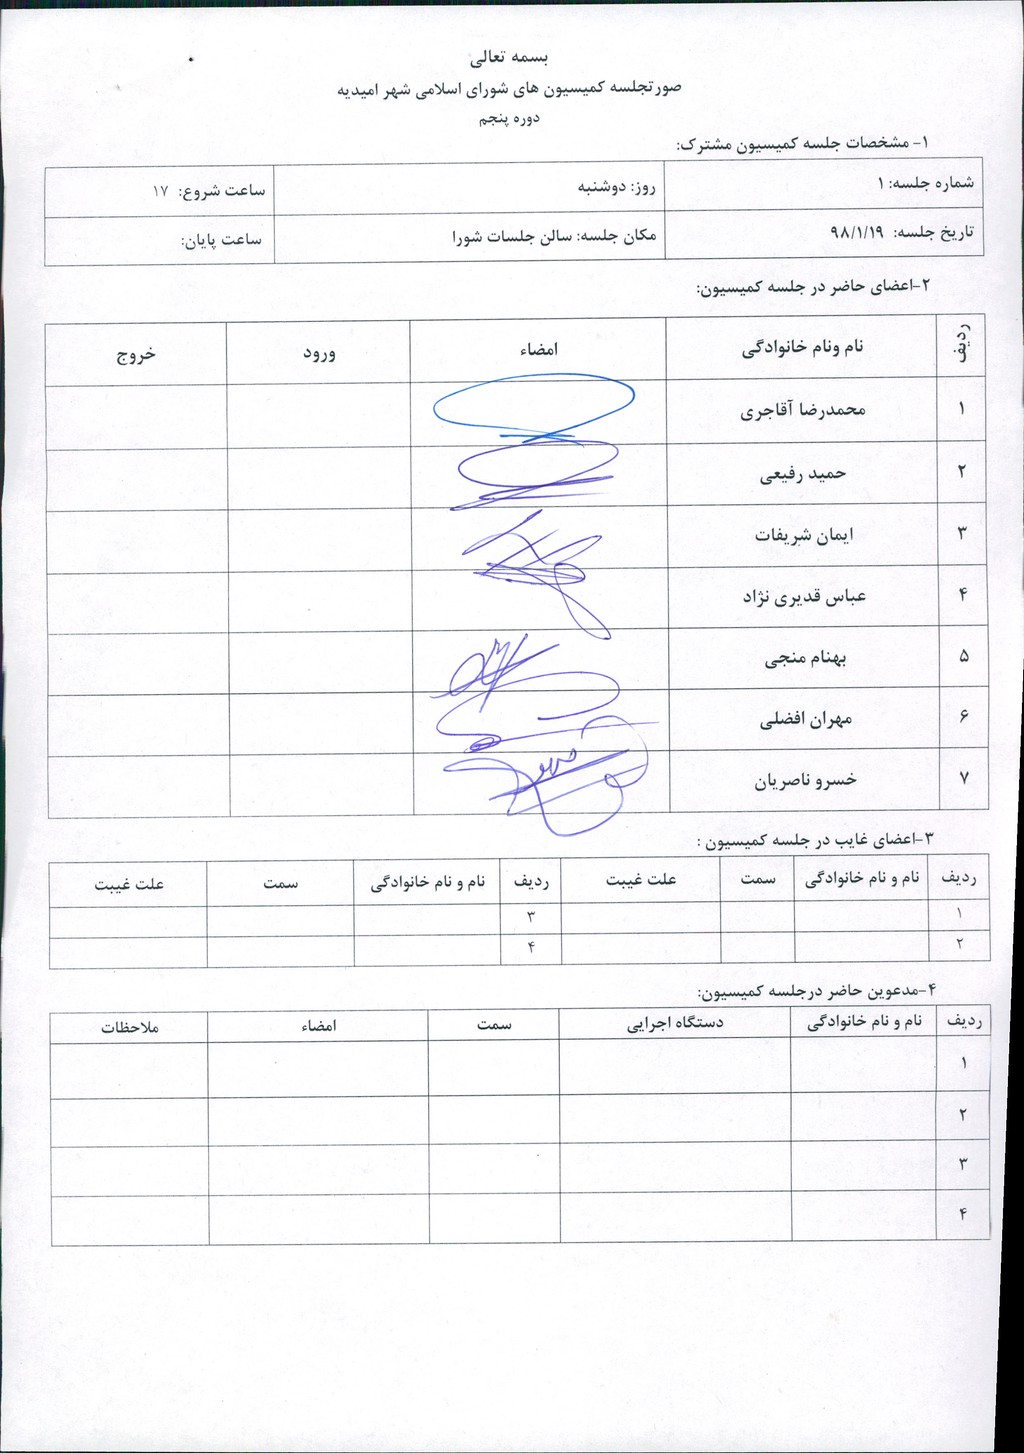 بسمه تعالی
صورتجلسه کمیسیون های شورای اسلامی شهر امیدیه
دوره پنجم
۱- مشخصات جلسه کمیسیون مشترک:
شماره جلسه: ۱ روز: دوشنبه ساعت شروع: ۱۷
تاریخ جلسه: ۹۸/۱/۱۹ مکان جلسه: سالن جلسات شورا ساعت پایان:
۲-اعضای حاضر در جلسه کمیسیون:
ردیف نام ونام خانوادگی امضاء ورود خروج
۱ محمدرضا آقاجری
۲ حمید رفیعی
۳ ایمان شریفات
۴ عباس قدیری نژاد
۵ بهنام منجی
۶ مهران افضلی
۷ خسرو ناصریان
۳-اعضای غایب در جلسه کمیسیون :
ردیف نام و نام خانوادگی سمت علت غیبت ردیف نام و نام خانوادگی سمت علت غیبت
۱ ۳
۲ ۴
۴-مدعوین حاضر درجلسه کمیسیون:
ردیف نام و نام خانوادگی دستگاه اجرایی سمت امضاء ملاحظات
۱
۲
۳
۴